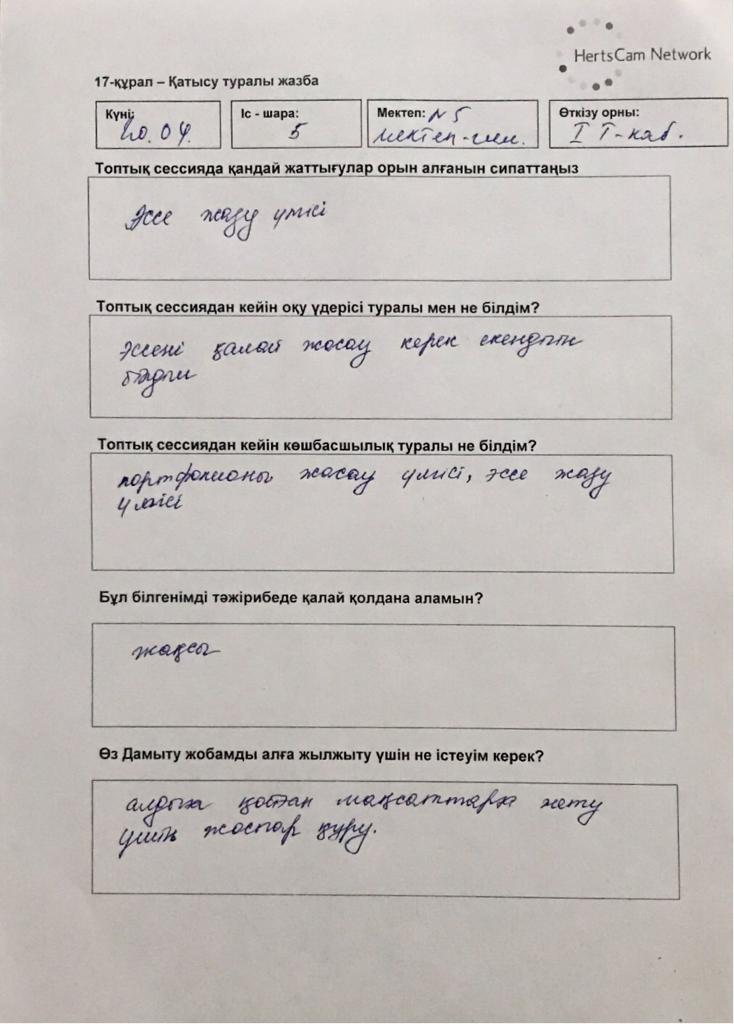 HertsCam Network
17-құрал – Қатысу туралы жазба
Күні: 20.04.
Іс - шара: 5
Мектеп: №5 мектеп-гим.
Өткізу орны: IT-каб.
Топтық сессияда қандай жаттығулар орын алғанын сипаттаңыз
Эссе жазу үлгісі
Топтық сессиядан кейін оқу үдерісі туралы мен не білдім?
Эссені қалай жасау керек екендігін
білдім
Топтық сессиядан кейін көшбасшылық туралы не білдім?
портфолионы жасау үлгісі, эссе жазу
үлгісі
Бұл білгенімді тәжірибеде қалай қолдана аламын?
жақсы
Өз Дамыту жобамды алға жылжыту үшін не істеуім керек?
алдыға қойған мақсаттарға жету
үшін жоспар құру.